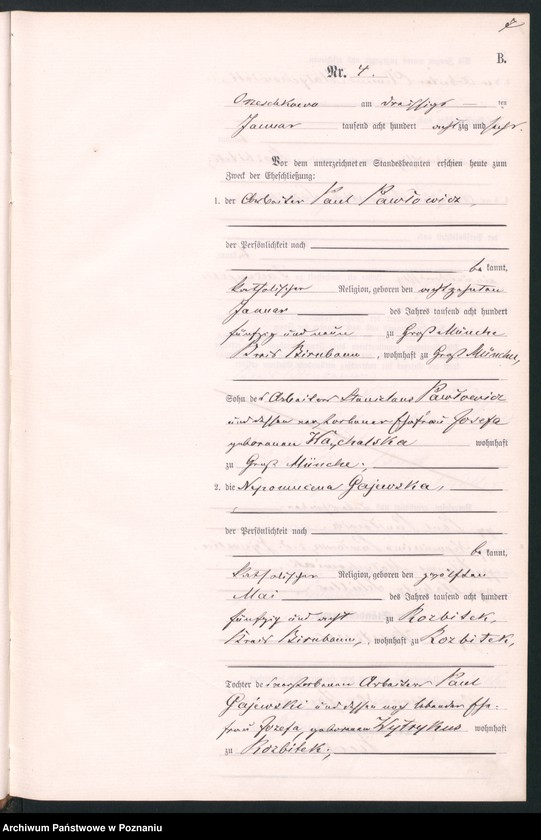 B.
Nr. 4.
Orzeschkowo am dreissigsten
Januar tausend acht hundert achtzig und sechs.
Vor dem unterzeichneten Standesbeamten erschien heute zum
Zweck der Eheschließung:
1. der Arbeiter Paul Pawłowicz,
der Persönlichkeit nach
be kannt,
katholischer Religion, geboren den achtzehnten
Januar des Jahres tausend acht hundert
fünfzig und neun zu Groß Münche
Kreis Birnbaum, wohnhaft zu Groß Münche,
Sohn des Arbeiters Stanislaus Pawłowicz
und dessen verstorbener Ehefrau Josefa
geborenen wohnhaft
zu Groß Münche;
2. die Nepomucena Gajewska,
der Persönlichkeit nach
be kannt,
katholischer Religion, geboren den zwölften
Mai des Jahres tausend acht hundert
fünfzig und acht zu Rozbitek,
Kreis Birnbaum, wohnhaft zu Rozbitek,
Tochter des verstorbenen Arbeiters Paul
Gajewski und dessen noch lebender Ehe-
frau Jozefa, geborenen Wytrykus wohnhaft
zu Rozbitek;
Archiwum Państwowe w Poznaniu